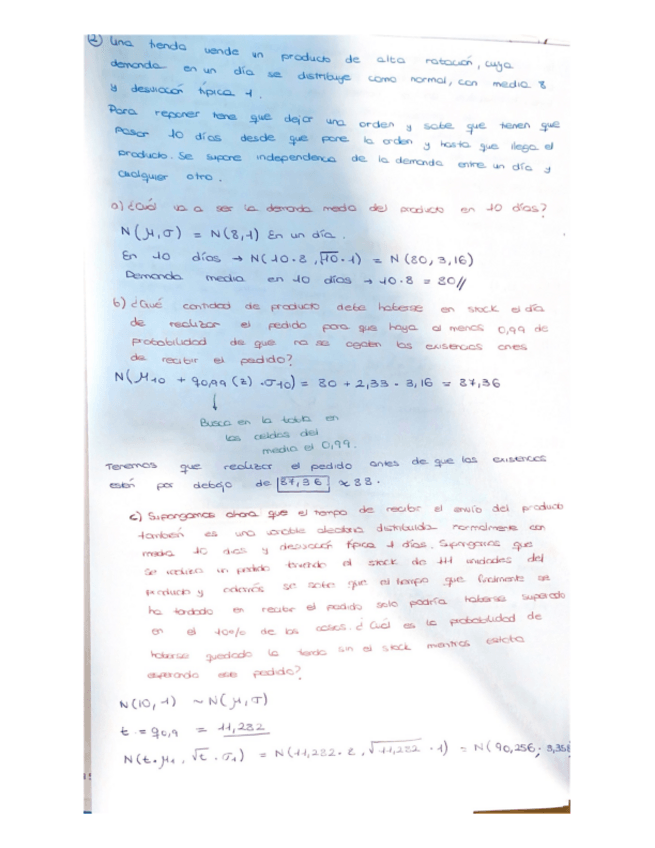 ② Una tienda vende un producto de alta rotación, cuya
demanda en un día se distribuye como normal, con media 8
y desviación típica 1.
Para reponer tiene que dejar una orden y sabe que tienen que
pasar 10 días desde que pone la orden y hasta que llega el
producto. Se supone independencia de la demanda entre un día y
cualquier otro.
a) ¿Cuál va a ser la demanda media del producto en 10 días?
N(μ,σ) = N(8,1) En un día.
En 10 días → N(10·8, √10·1) = N(80, 3,16)
Demanda media en 10 días → 10·8 = 80//
b) ¿Qué cantidad de producto debe haberse en stock el día
de realizar el pedido para que haya al menos 0,99 de
probabilidad de que no se agoten las existencias antes
de recibir el pedido?
N(μ10 + q0,99 (z) · σ10) = 80 + 2,33 · 3,16 = 87,36
↓
Busca en la tabla en
las celdas del
medio el 0,99.
Tenemos que realizar el pedido antes de que las existencias
estén por debajo de 87,36 ≈ 88.
c) Supongamos ahora que el tiempo de recibir el envío del producto
también es una variable aleatoria distribuida normalmente con
media 10 días y desviación típica 1 días. Supongamos que
se realiza un pedido teniendo el stock de 111 unidades del
producto y además se sabe que el tiempo que finalmente se
ha tardado en recibir el pedido solo podría haberse superado
en el 10% de los casos. ¿Cuál es la probabilidad de
haberse quedado la tienda sin el stock mientras estaba
esperando ese pedido?
N(10, 1) ~ N(μ,σ)
t = q0,9 = 11,282
N(t·μ1, √t · σ1) = N(11,282·8, √11,282 · 1) = N(90,256; 3,358